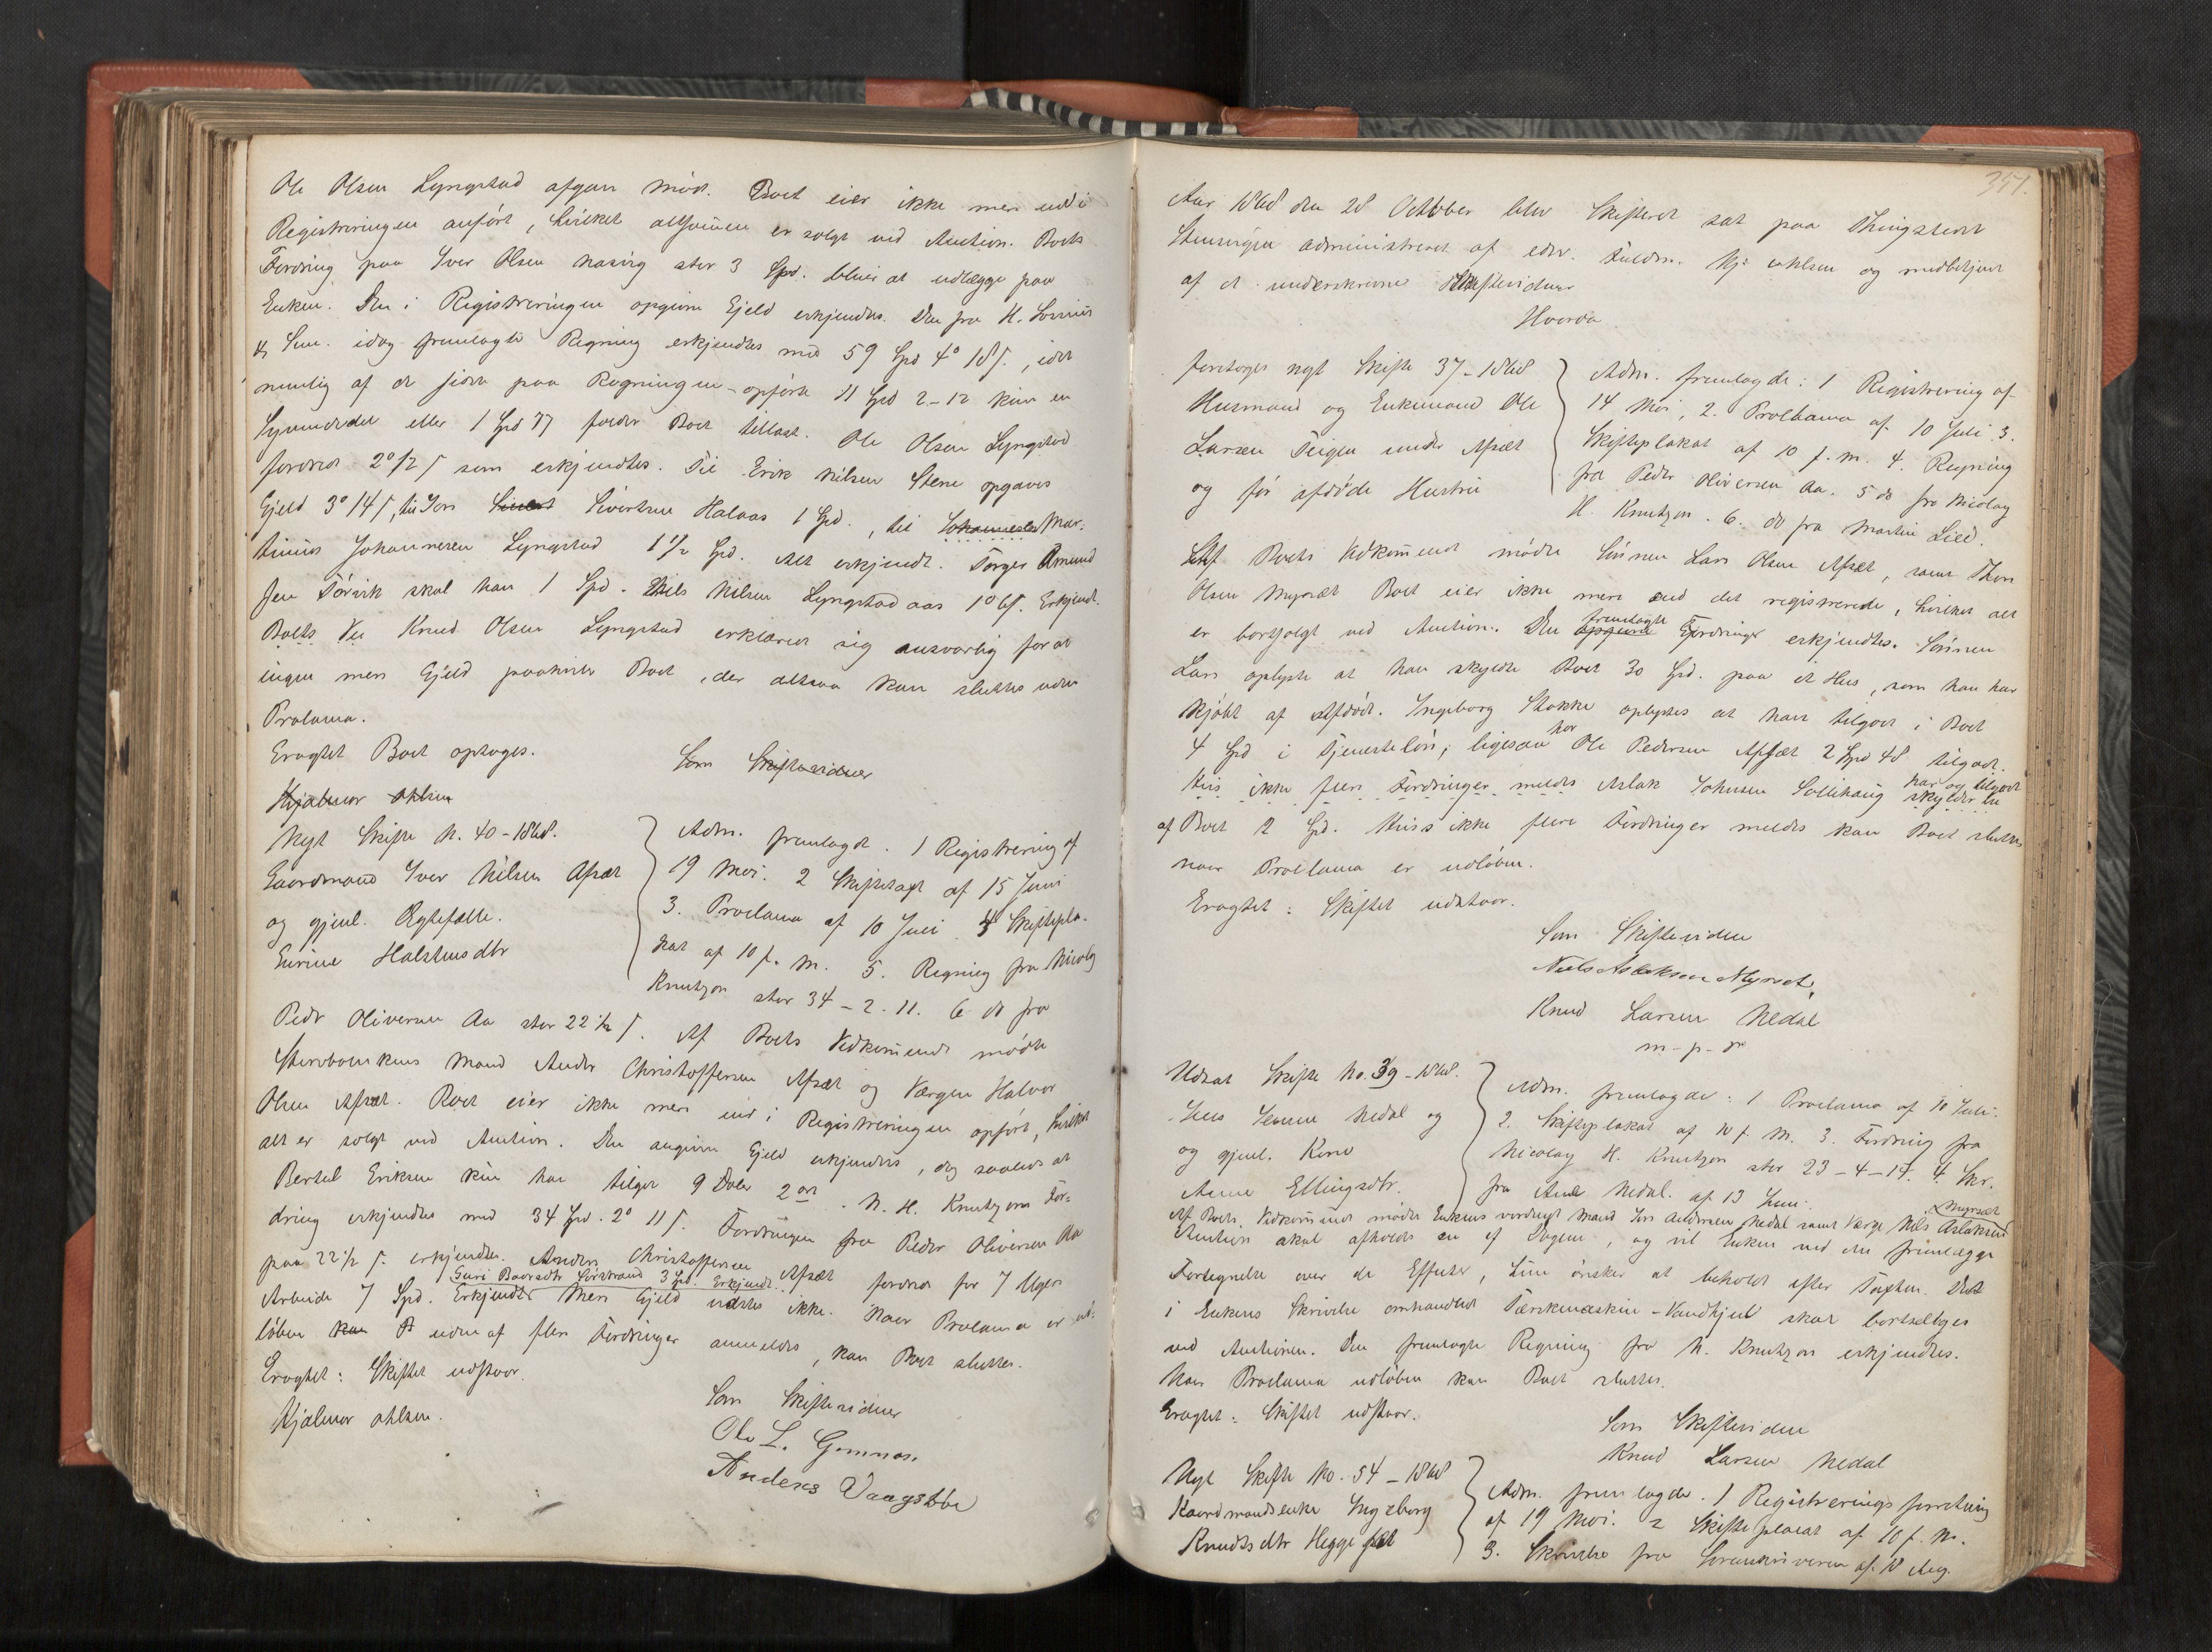 Ole Olsen Lyngstad afgav Möde. Boet eier ikke mere end i
Registreringen anfört, hvilket altsammen er solgt ved Auction. Boets
Fordring paa Iver Olsen Nasvig stor 3 Spd. bliver at udlægge paa
Enken. Den i Registreringen opgivne Gjeld erkjendes. Den fra H.
& Sön. idag fremlagte Regning erkjendtes med 59 Spd 4º 18 s., idet
nemlig af de sidste paa Regningen opförte 11 Spd 2-12 kun en
eller 1 Spd 77 s Boet tillast. Ole Olsen Lyngstad
fordred 2º 12 s som erkjendtes. Til Erik Nilsen Stene opgaves
Gjeld 3º 14 s, til Jon Sivert Sivertsen Halaas 1 Spd., til Johannesen Mar-
tinus Johannesen Lyngstad 1 1/2 Spd. Alt erkjendt. Torger Amund
sen Törvik skal have 1 Spd. Niels Nilsen Lyngstadaas 1º 6 s. Erkjendt.
Boets Ver Knud Olsen Lyngstad erklæred sig ansvarlig for at
ingen mere Gjeld paahviler Boet, der altsaa kan sluttes uden
Prolama.
Eragtet Boet optages.
Som Skiftevidner
Hjalmar Ohlsen
Nyt Skifte N. 40-1868.
Gaardmand Iver Nilsen Afsæt
og gjenl. Ægtefælle.
Eurine Halstensdtr
Adm. fremlagde. 1 Registrering af
19 Mai. 2 Skifteragt af 15 Juni
3. Proclama af 10 Juli 4 Skiftepla-
kat af 10 f. M. 5. Regning fra Nicolay
Knutzon stor 34-2-11. 6 do fra
Peder Oliversen Aa stor 22 1/2 s. Af Boets Vedkommende mödte
Stervboenkens Mand Anders Christoffersen Afsæt og Værgen Halvor
Olsen Afsæt. Boet eier ikke mere end i Registreringen opfört, hvilket
alt er solgt ved Auction. Den angivne Gjeld erkjendes, dog saaledes at
Bertel Eriksen kun har tilgode 9 Daler 2 ort. N. H. Knutzons For-
dring erkjendtes med 34 Spd. 2º 11 s. Fordringen fra Peder Oliversen Aa
paa 22 1/2 s. erkjendtes. Anders Christoffersen Afsæt fordred for 7 Ugers
Guri Baardsdtr Sörstrand 3 Spd. Erkjendt.
Arbeide 7 Spd. Erkjendt. Mere Gjeld vidstes ikke. Naar Prolama er ud-
löben kan B uden af flere Fordringer anmeldes, kan Boet sluttes.
Eragtet: Skiftet udstaar.
Hjalmar Ohlsen.
Som Skiftevidner
Ole L. Gomnæs.
Anders Vaagsböe
351.
Aar 1868 den 28 October blev Skifteret sat paa Thingstedet
Stensvigen administreret af edsv. Fuldm. Hj: Ohlsen og medbetjent
af de underskrevne Skiftevidner
Hvorda
foretoges nyt Skifte 37-1868
Husmand og Enkemand Ole
Larsen Teigen under Afsæt
og för afdöde Hustru
Adm. fremlagde: 1 Registrering af
14 Mai, 2. Proclama af 10 Juli 3.
Skifteplakat af 10 f. M. 4. Regning
fra Peder Oliversen Aa. 5 do fra Nicolay
H. Knutzon. 6. do fra Martin Lied.
Af Boets Vedkommende mödte Sönnen Lars Olsen Afsæt, samt Thor
Olsen Myrsæt Boet eier ikke mere end det registrerede, hvilket alt
er bortsolgt ved Auction. Den opgivne fremlagte Fordringer erkjendtes. Sönnen
Lars oplyste at han skyldte Boet 30 Spd. paa et Hus, som han har
kjöbt af Afdöde. Ingeborg Stokke oplystes at have tilgode i Boet
4 Spd i Tjenestelön, ligesaa har Ole Pedersen Afsæt 2 Spd 48 tilgode.
Hvis ikke flere Fordringer meldes Aslak Johnsen Sollihaug har og tilgode skylder
af Boet 2 Spd. Hvis ikke flere Fordringer meldes kan Boet sluttes
naar Proclama er udlöben.
Eragtet: Skiftet udstaar.
Som Skiftevidner
Niels Aslaksen Myrset,
Knud Larsen Nedal
m-p-P
Udsat Skifte No. 39-1868.
Jens Jensen Nedal og
og gjenl. Kone
Anne Ellingsdtr.
Adm. fremlagde: 1 Proclama af 10 Juli.
2. Skifteplakat af 10 f. M. 3. Fordring fra
Nicolay H. Knutzon stor 23-4-17. 4. Skr.
fra Anne Nedal. af 13 Juni.
Af Boets Vedkommende mödte Enkens vordende Mand Jon Andersen Nedal samt Værge Nils Aslaksen Myrsæt
Auction skal afholdes en af Dagene, og vil Enken ved den fremlægge
Fortegnelse over de Effecter, hun önsker at beholde efter Taxten. Det
i Enkens Skrivelse omhandlede Tærskemaskin-Vandhjul skal bortselges
ved Auctionen. Den fremlagte Regning fra N. Knutzon erkjendtes.
Naar Proclama udlöben kan Boet sluttes.
Eragtet: Skiftet udstaar.
Som Skiftevidner
Knud Larsen Nedal
Nyt Skifte No. 54-1868
Gaardmandsenke Ingeborg
Knudtsdtr Heggeset
Adm. fremlagde. 1 Registreringsforretning
af 19 Mai. 2 Skifteplacat af 10 f. M.
3. Skrivelse fra Sorenskriveren af 18 Aug.